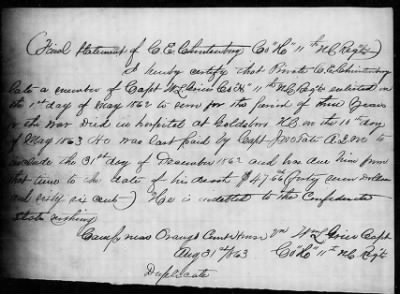 (Final Statement of C. E. Co "H" 11th N.C. Regts)
I hereby certify that Private C. E.
late a member of Capt W L Grier Co "H" 11th N.C. Regts enlisted on
the 1st day of May 1862 to serve for the period of three years
or the war Died in hospital at Goldsboro N.C. on the 10th day
of May 1863 He was last paid by Capt Jno Tate A.Q.M. to
include the 31st day of December 1862 and has due him from
that time to the date of his death $ 47.66 (forty seven dollars
and sixty six cents) He is indebted to the Confederate
States nothing
Camp near Orange Court House Va Wm L Grier Capt
Aug 31st 1863 Co "H" 11th N.C. Regts
Duplicate